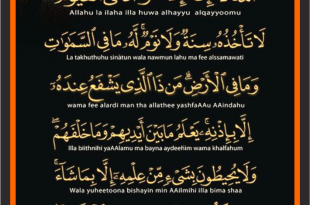 Allahu la ilaha illa huwa alhayyu alqayyoomu
لَا تَأْخُذُهُ سِنَةٌ وَلَا نَوْمٌ لَهُ مَا فِي السَّمَاوَاتِ
La takhuthuhu sinatun wala nawmun lahu ma fee alssamawati
وَمَا فِي الْأَرْضِ مَنْ ذَا الَّذِي يَشْفَعُ عِنْدَهُ
wama fee alardi man tha allathee yashfaAAu AAindahu
إِلَّا بِإِذْنِهِ يَعْلَمُ مَا بَيْنَ أَيْدِيهِمْ وَمَا خَلْفَهُمْ
illa biithnihi yaAAlamu ma bayna aydeehim wama khalfahum
وَلَا يُحِيطُونَ بِشَيْءٍ مِنْ عِلْمِهِ إِلَّا بِمَا شَاءَ
Wala yuheetoona bishayin min AAilmihi illa bima shaa